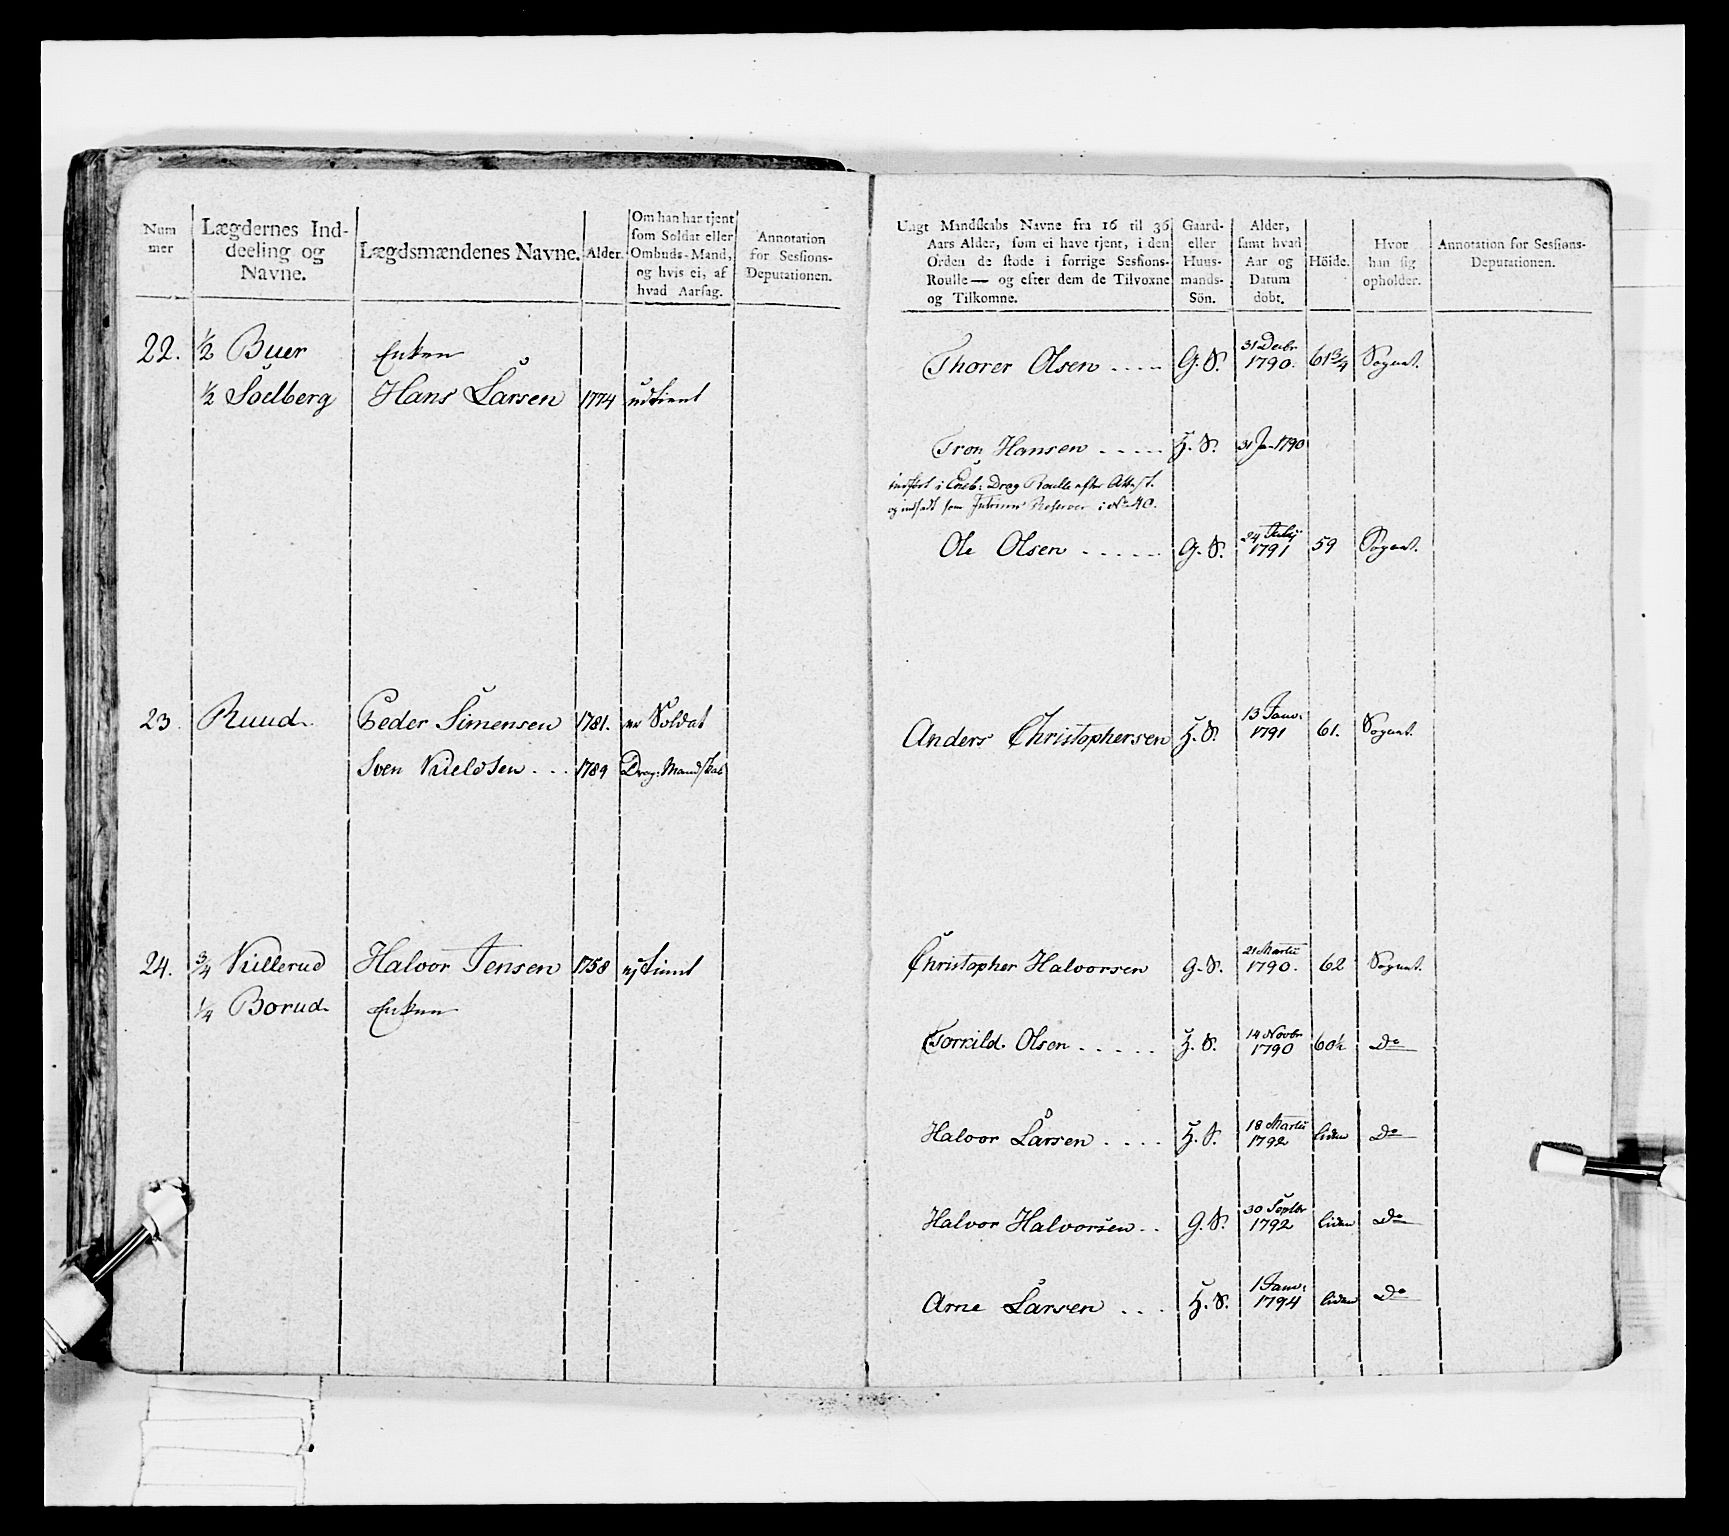 Num
mer
Lægdernes Ind-
deeling og
Navne.
Lægdsmændenes Navne.
Alder.
Om han har tjent
som Soldat eller
Ombuds-Mand,
og hvis ei, af
hvad Aarsag.
Annotation
for Sessions-
Deputationen.
22. ½ Buer Enken
½ Soelberg Hans Larsen 1774 udtient
23. Ruud Peder Simensen 1781. er Soldat
Sven 1789 Drag: Mandskab
24. ¾ Killerud Halvor Jensen 1758 ej tient
¼ Borud Enken
Ungt Mandskabs Navne fra 16 til 36
Aars Alder, som ei have tjent, i den
Orden de stode i forrige Sessions-
Roulle — og efter dem de Tilvoxne
og Tilkomne.
Gaard-
eller
Huus-
mands-
Sön.
Alder,
samt hvad
Aar og
Datum
döbt.
Höide.
Hvor
han sig
opholder.
Annotation for Sessions-
Deputationen.
Thorer Olsen ..... G. S. 31 Decbr 1790. 61¾ Sognet.
Tron Hansen ..... H. S. 31 Ja 1790
indfört i Drag Roulle efter Attest.
og indsadt som Reserver i No 40.
Ole Olsen ..... G. S. 24 July 1791 59 Sognet.
Anders Christophersen H. S. 13 Janv: 1791 61. Sognet.
Christopher Halvorsen G. S. 21 Martii 1790. 62 Sognet.
Torkild Olsen ..... H. S. 14 Novbr 1790 60½ Do
Halvor Larsen .... H. S. 18 Martii 1792 liden Do
Halvor Halvorsen .. G. S. 30 Septbr 1792 liden Do
Arne Larsen ... H. S. 1 Janv: 1794 liden Do